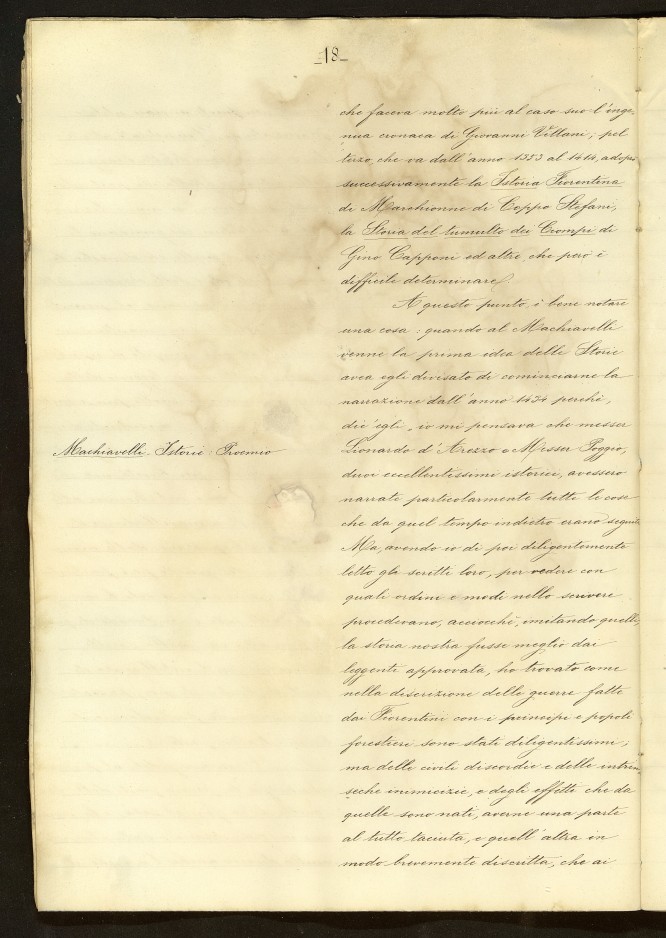 _18_
che faceva molto più al caso suo l'inge-
nua cronaca di Giovanni Villani; pel
terzo, che va dall'anno 1353 al 1414, adopra
successivamente la Istoria Fiorentina
di Marchionne di Coppo Stefani,
la Storia del tumulto dei Ciompi di
Gino Capponi ed altre che però è
difficile determinare.
A questo punto, è bene notare
una cosa: quando al Machiavelli
venne la prima idea delle Storie
avea egli divisato di cominciarne la
narrazione dall'anno 1434 perchè,
dic'egli "io mi pensava che messer
Machiavelli. Istorie: Proemio
Lionardo d'Arezzo e Messer Poggio,
duoi eccellentissimi istorici, avessero
narrate particolarmente tutte le cose
che da quel tempo indietro erano seguite
Ma, avendo io di poi diligentemente
letto gli scritti loro, per vedere con
quali ordini e modi nello scrivere
procedevano, acciocchè, imitando quelli,
la storia nostra fusse meglio dai
leggenti approvata, ho trovato come
nella descrizione delle guerre fatte
dai Fiorentini con i principi e popoli
forestieri sono stati diligentissimi;
ma delle civili discordie e delle intrin-
seche inimicizie, e degli effetti che da
quelle sono nati, averne una parte
al tutto taciuta, e quell'altra in
modo brevemente descritta, che ai